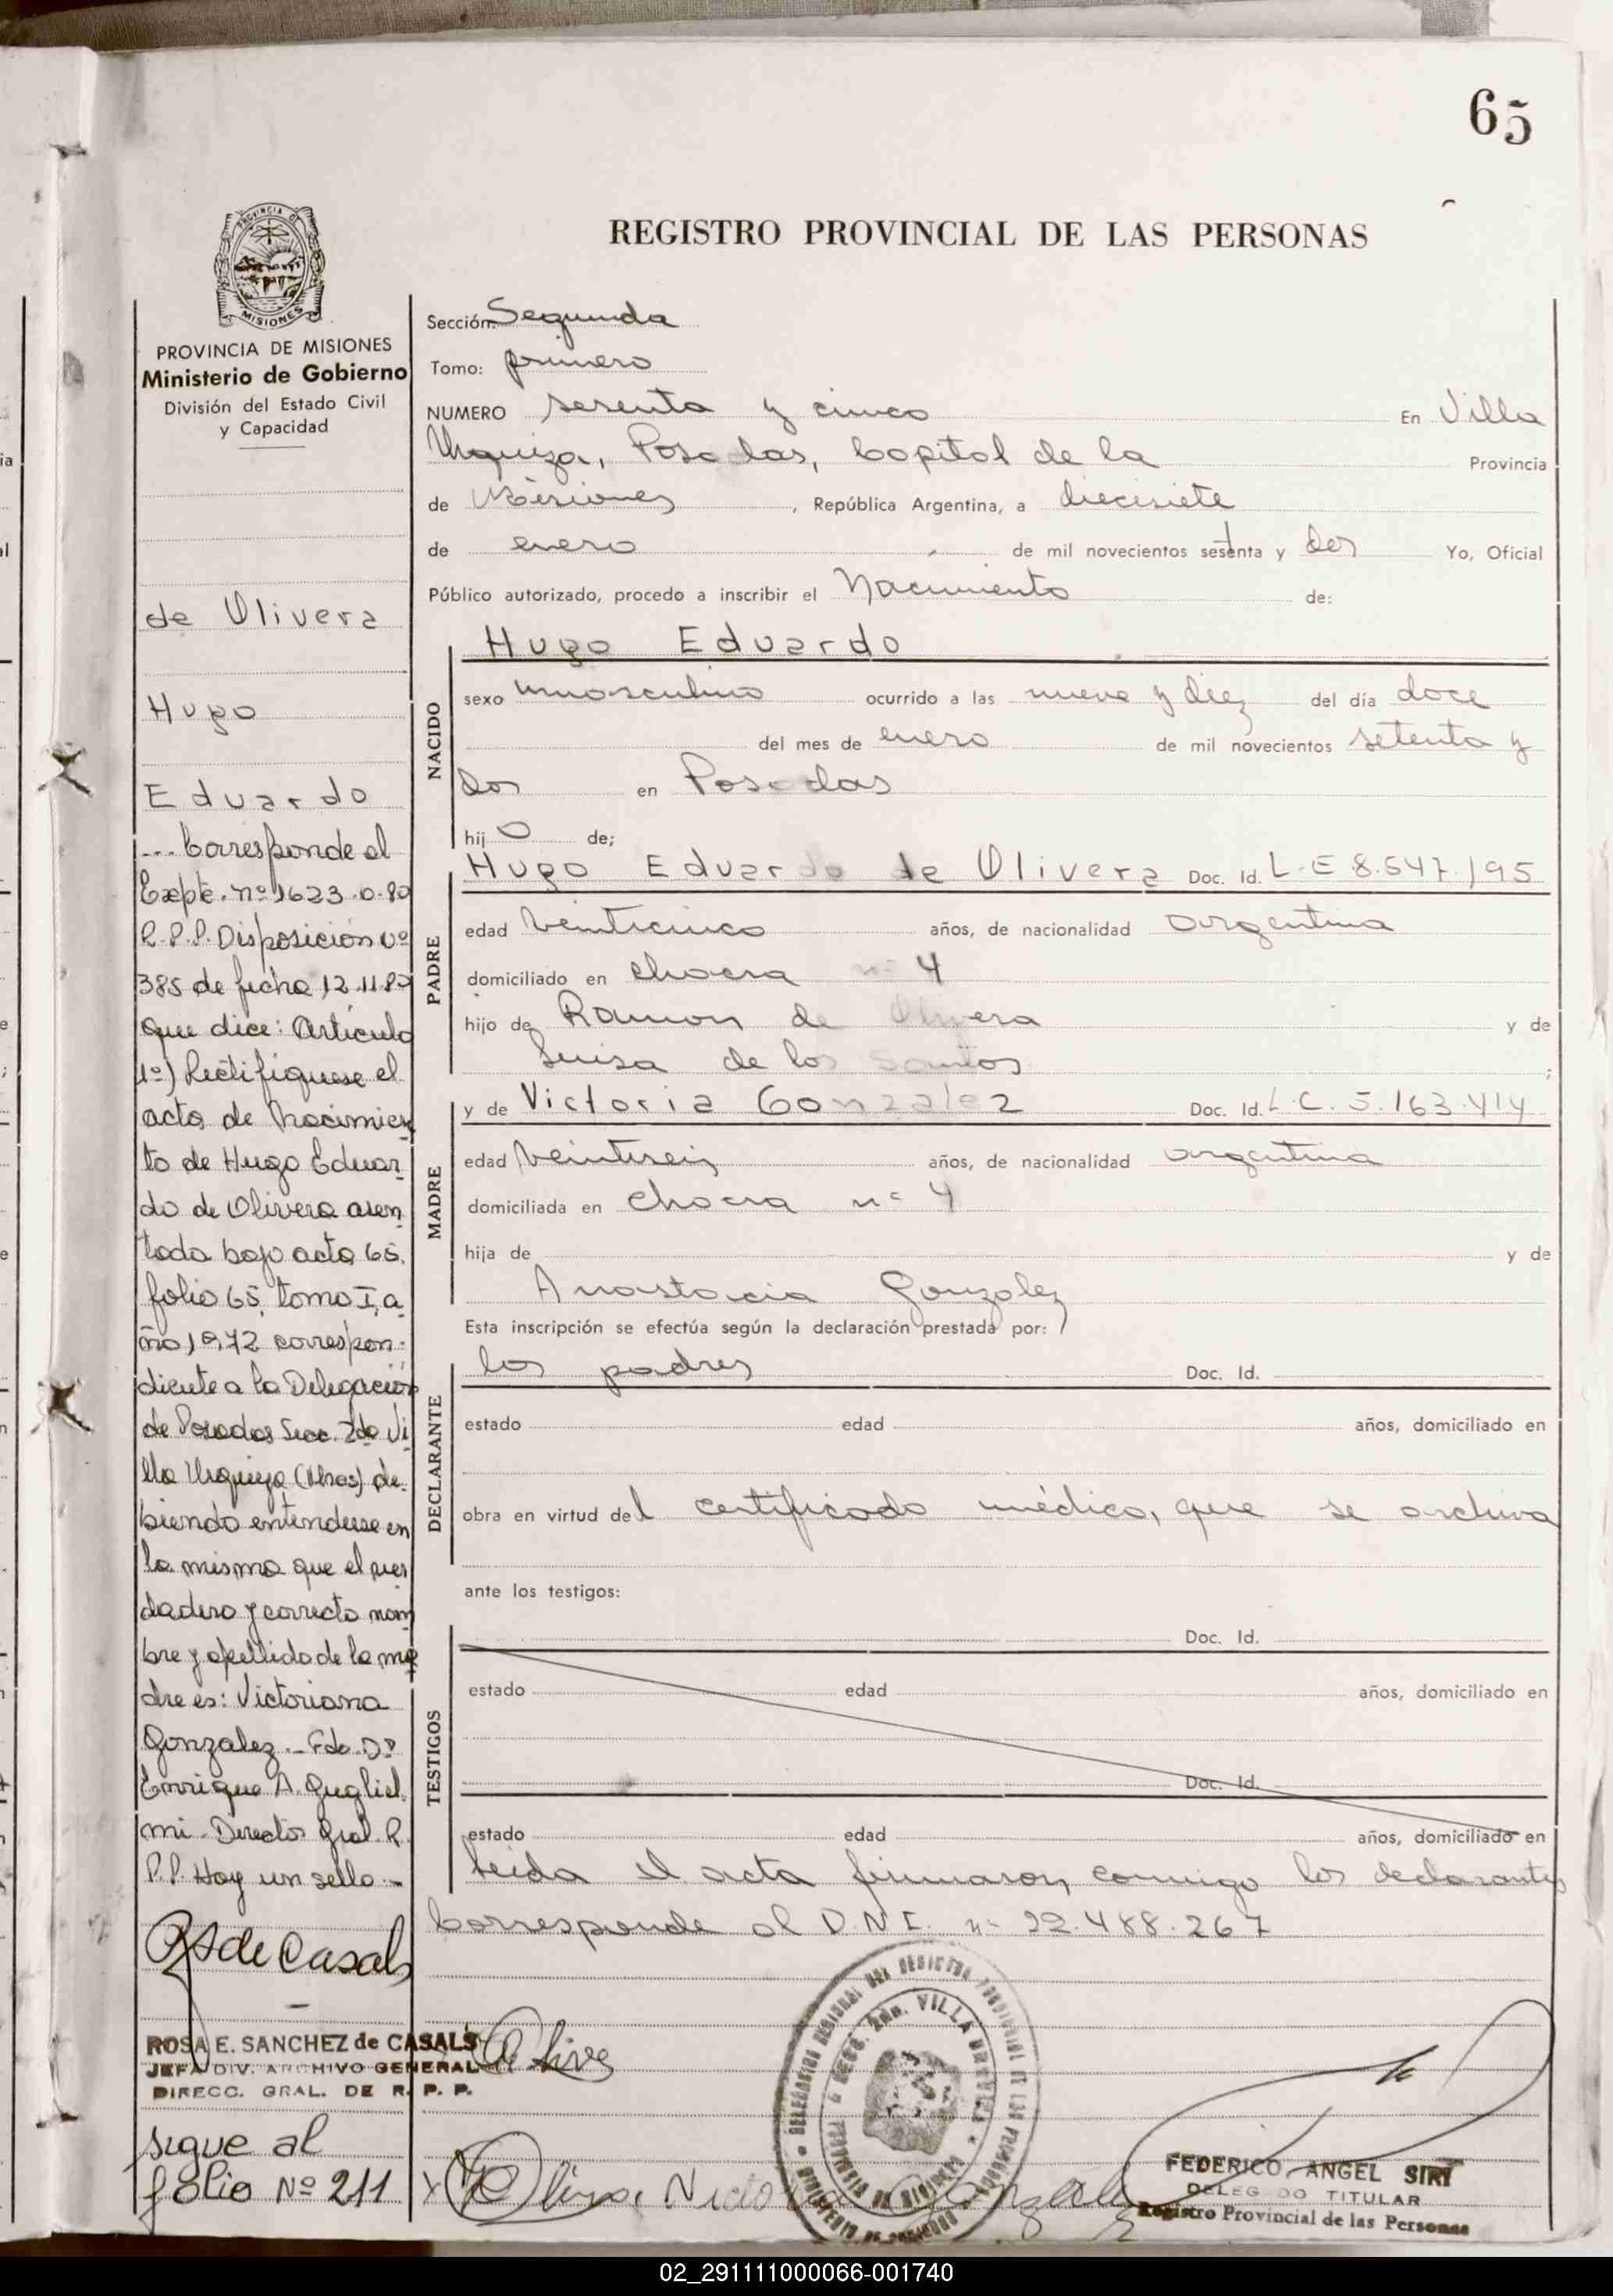 65
REGISTRO PROVINCIAL DE LAS PERSONAS
PROVINCIA DE MISIONES
Ministerio de Gobierno
División del Estado Civil
y Capacidad
de Olivera
Hugo
Eduardo
... Corresponde al
Expte. nº 1623-0-80
R.P.P. Disposición Nº
385 de fecha 12.11.80
que dice: Artículo
1º) Rectifíquese el
acta de Nacimien
to de Hugo Eduar
do de Olivera asen
tada bajo acta 65,
folio 65, tomo I, a
ño 1972 correspon-
diente a la Delegación
de Posadas Secc. 2da Vi
lla Urquiza (Mnes) de-
biendo entenderse en
la misma que el ver
dadero y correcto nom
bre y apellido de la ma
dre es: Victoriana
Gonzalez.- Fdo. Dr
Enrique A. Gugliel
mi - Director Gral. R.
P.P. Hay un sello.-
RSde Casals
ROSA E. SANCHEZ de CASALS
JEFA DIV. ARCHIVO GENERAL
DIRECC. GRAL. DE R. P. P.
sigue al
folio Nº 211
Sección: Segunda
Tomo: primero
NUMERO sesenta y cinco En Villa
Urquiza, Posadas, Capital de la Provincia
de Misiones, República Argentina, a diecisiete
de enero de mil novecientos setenta y dos Yo, Oficial
Público autorizado, procedo a inscribir el Nacimiento de:
NACIDO
Hugo Eduardo
sexo masculino ocurrido a las nueve y diez del día doce
del mes de enero de mil novecientos setenta y
dos en Posadas
hijo de;
PADRE
Hugo Eduardo de Olivera Doc. Id. L.E 8.547.195
edad veinticinco años, de nacionalidad argentina
domiciliado en chacra nº 4
hijo de Ramon de Olivera y de
Luisa de los Santos ;
MADRE
y de Victoria Gonzalez Doc. Id. L.C. 5.163.414
edad veintiseis años, de nacionalidad argentina
domiciliada en chacra nº 4
hija de y de
Anastacia Gonzalez
Esta inscripción se efectúa según la declaración prestada por:
DECLARANTE
los padres Doc. Id.
estado edad años, domiciliado en
obra en virtud del certificado médico, que se archiva
ante los testigos:
TESTIGOS
Doc. Id.
estado edad años, domiciliado en
Doc. Id.
estado edad años, domiciliado en
Leida el acta firmaron conmigo los declarantes
Corresponde al D.N.I. nº 22.488.267
FEDERICO ANGEL SIRI
DELEGADO TITULAR
Registro Provincial de las Personas
02_291111000066-001740